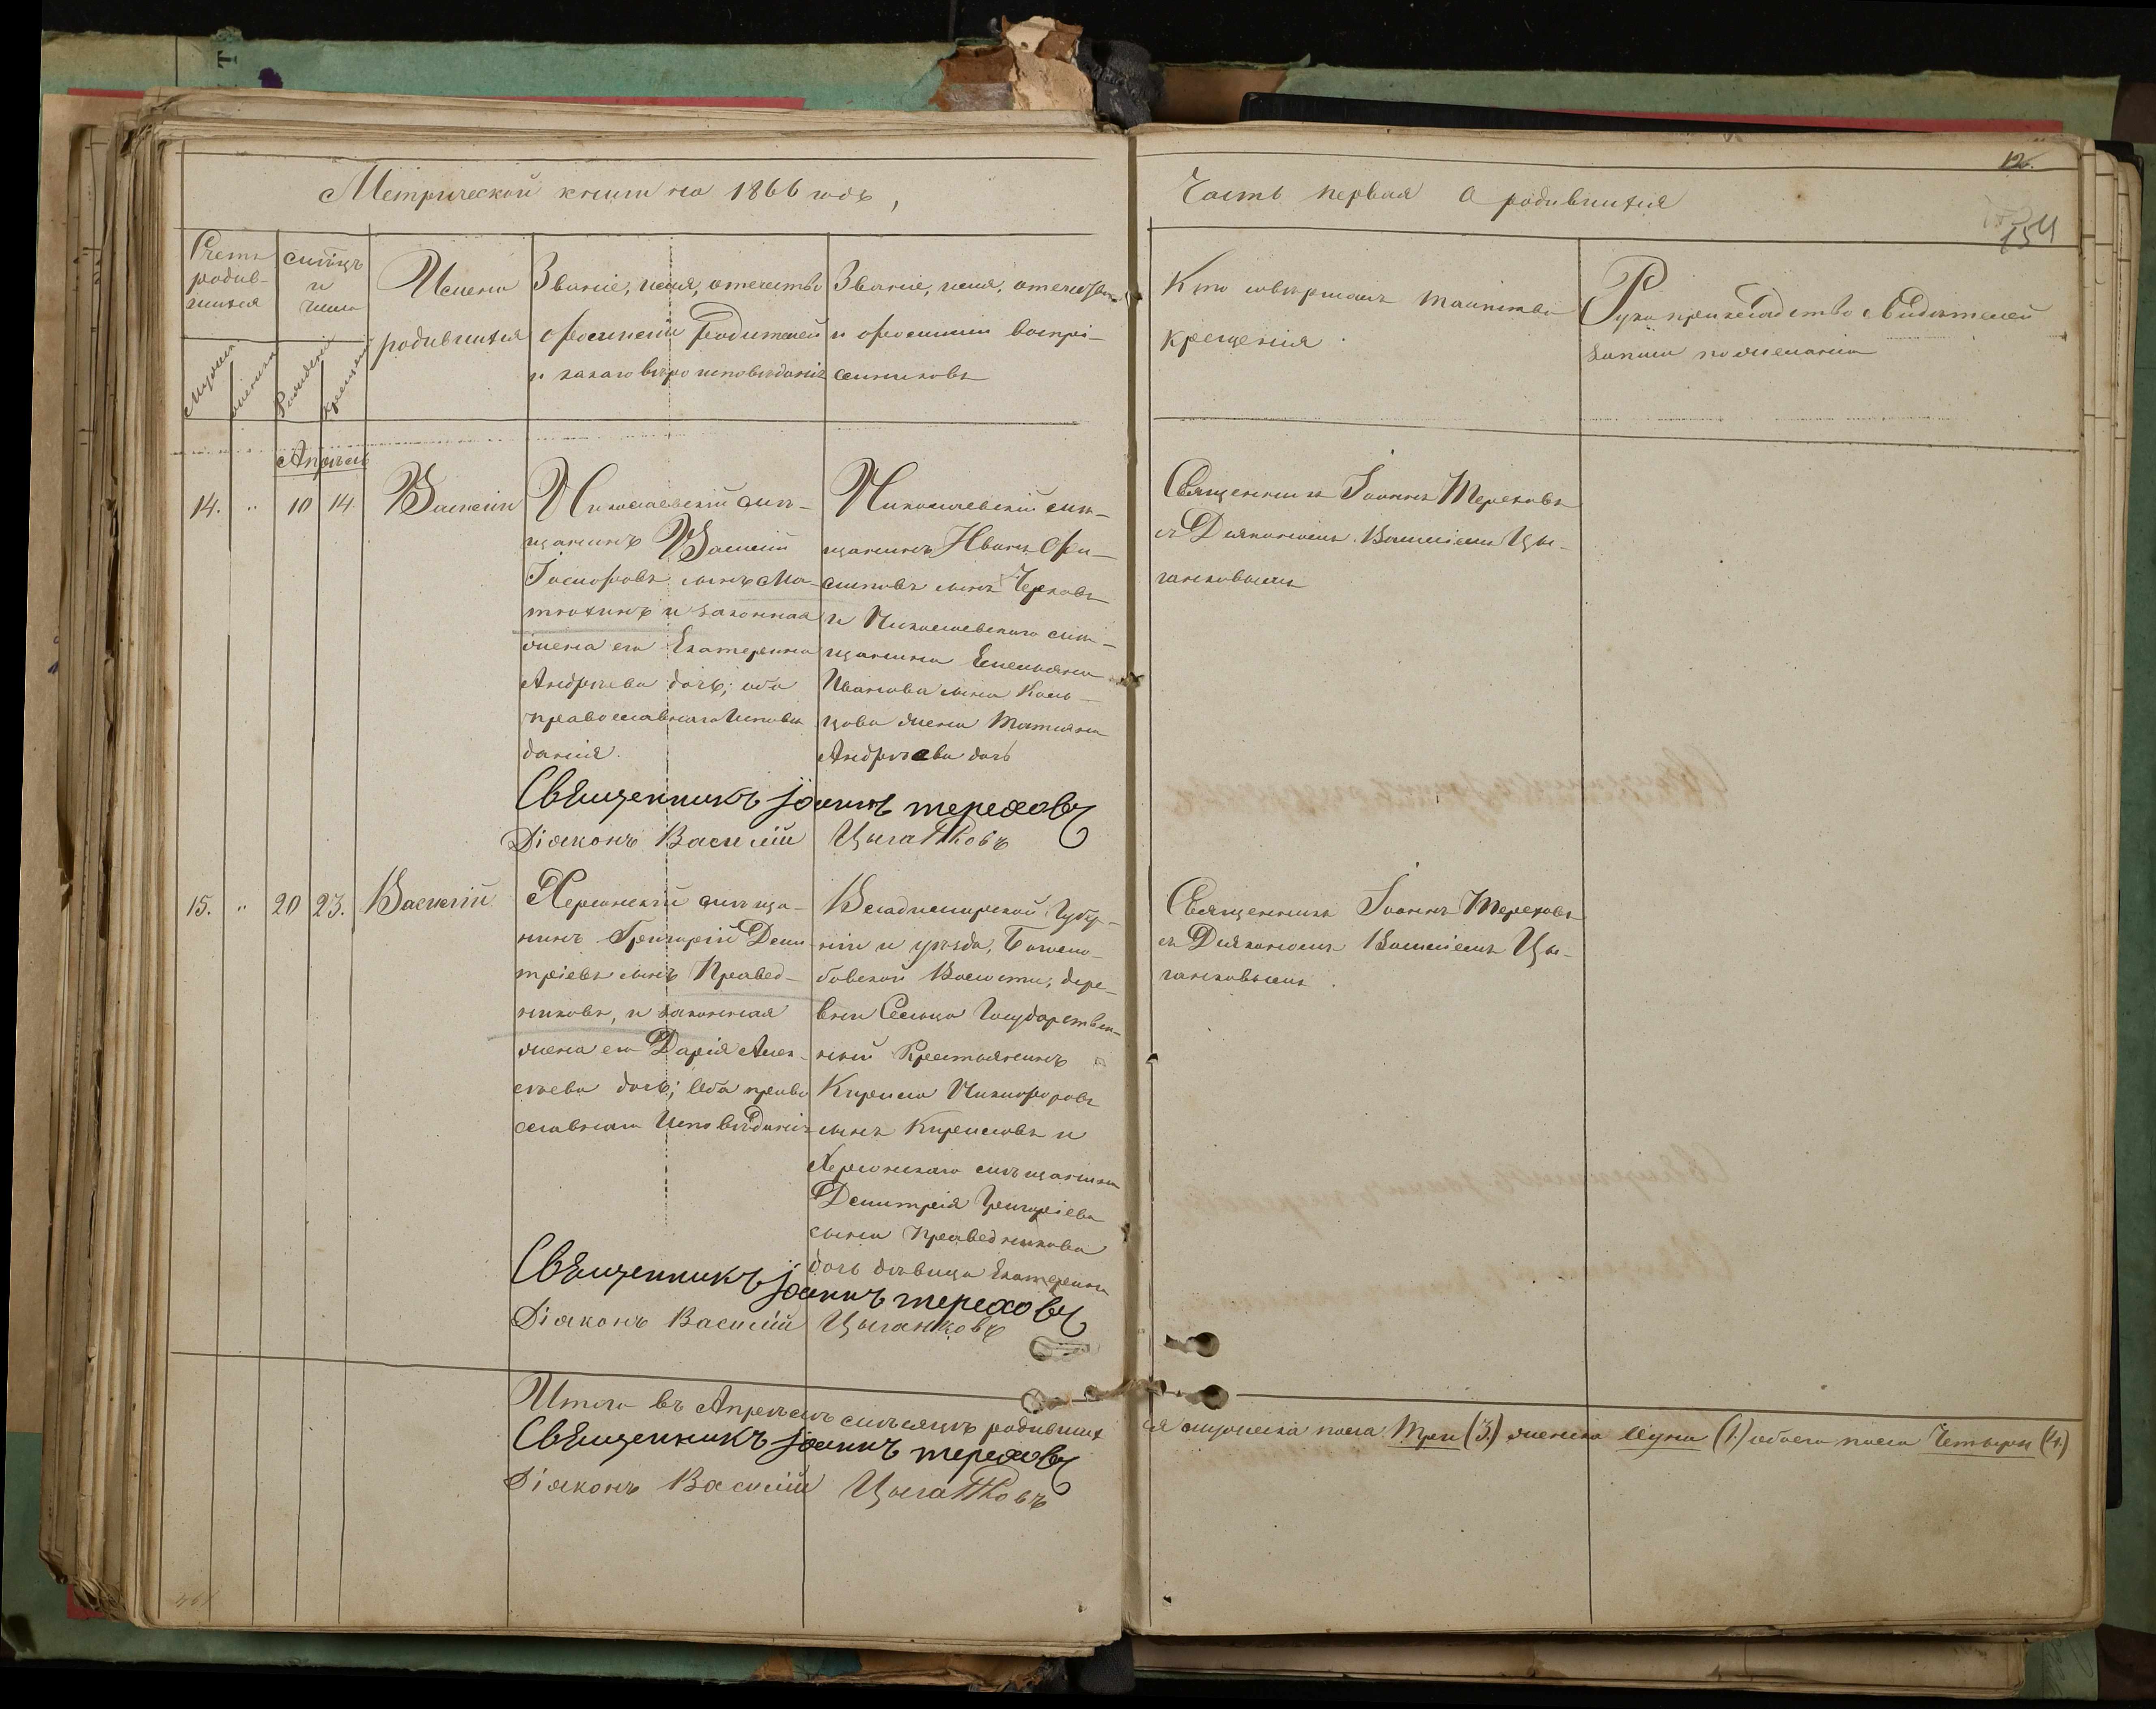 Метрической книги на 1866 годъ,
Часть первая О родившихся
12.
154
Счетъ родив-шихся
мѣсяцъ и число
Имена родившихся
Званіе, имя, отечество и фамилія родителей и какаго вѣроисповѣданія
Званіе, имя, отечество и фамилія воспрі-емниковъ
Кто совершалъ таинство крещенія
Рукоприкладство свидѣтелей записи по желанію
Мужеска
женска
Рожденія
крещенія
Апрѣль
14. " 10 14. Василій
Николаевскій мѣ-
щанинъ Василій
сынъ Ма-
тюхинъ и законная
жена его Екатерина
Андрѣева дочь; оба
православнаго Исповѣ
данія.
Николаевскій мѣ-
щанинъ Иванъ Фи-
липовъ сынъ Черковъ
и Николаевскаго мѣ-
щанина Емельяна
Иванова сына Коль-
цова жена Татіяна
Андрѣева дочь
Священникъ Іоаннъ Тереховъ
съ Діякономъ Василіемъ Цы-
ганковымъ
Священникъ Іоаннъ Тереховъ
Діяконъ Василій Цыганковъ
15. " 20 23. Василій
Херсонскій мѣща-
нинъ Григорій Дими-
тріевъ сынъ Правед-
никовъ, и законная
жена его Дарія Алек-
сѣева дочь; оба право
славнаго Исповѣданія
Владимирской Губер-
ніи и уѣзда, Боголю-
бовской Волости, дере-
вни Сельца Государствен-
ный Крестьянинъ
Кирило Никифоровъ
сынъ Кириловъ и
Херсонскаго мѣщанина
Димитрія Григоріева
сына Праведникова
дочь дѣвица Екатерина
Священникъ Іоаннъ Тереховъ
съ Діякономъ Василіемъ Цы-
ганковымъ.
Священникъ Іоаннъ Тереховъ
Діяконъ Василій Цыганковъ
Итого въ Апрѣлѣ мѣсяцѣ родивших ся мужеска пола Три (3.) женска Одна (1.) обоего пола Четыре (4.)
Священникъ Іоаннъ Тереховъ
Діяконъ Василій Цыганковъ